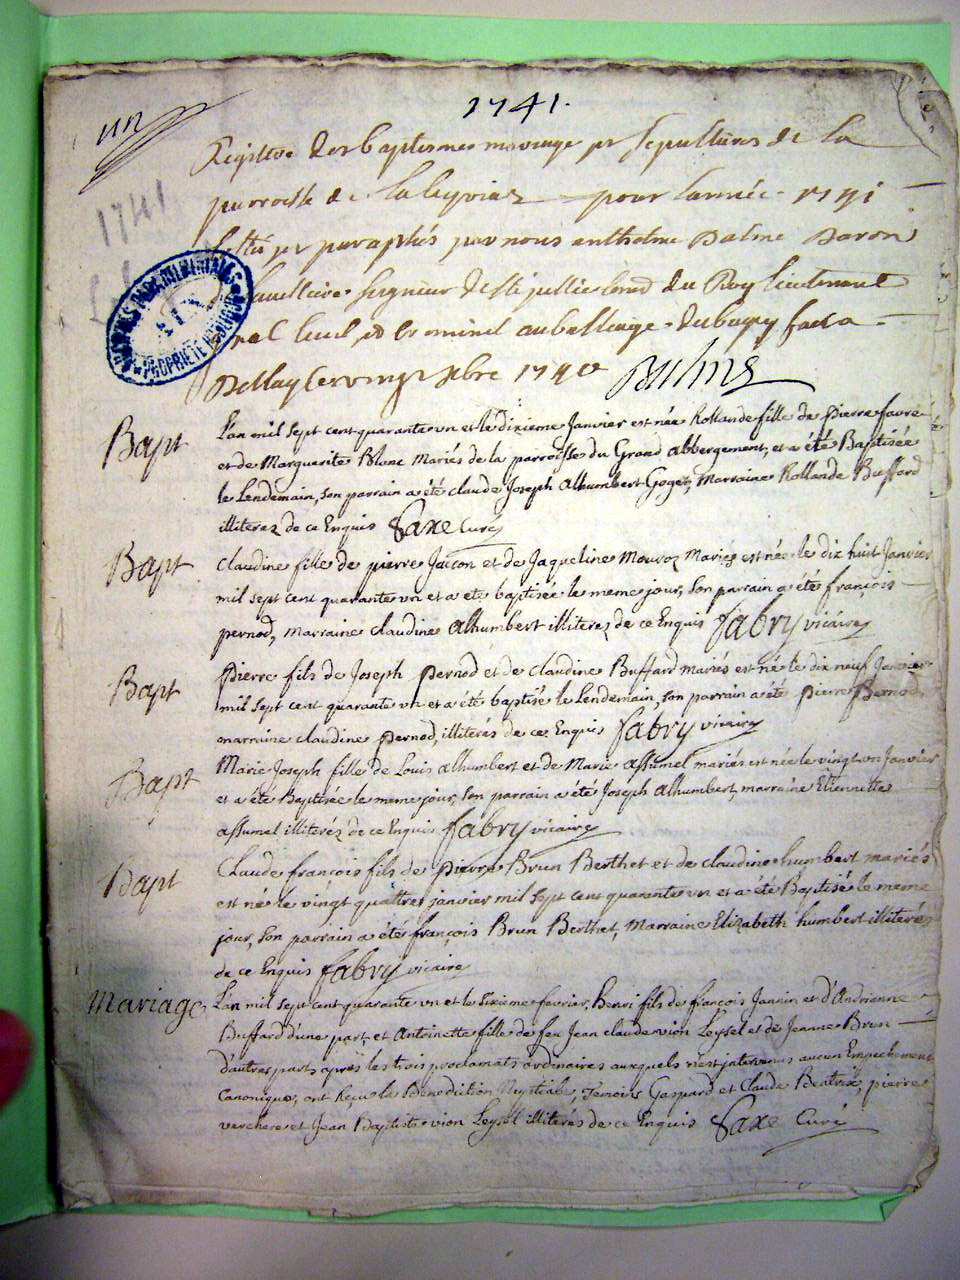 1741.
un
Registre des baptesmes mariage et sepultures de la
parroisse de pour l'année 1741
1741
et paraphés par nous anthelme Balme Baron
seigneur de Ste Julie Cons.er du Roy lieutenant
civil, et criminel au bailliage du bugey fait a
Bellay ce vingt xbre 1740 Balme
ARCHIVES DEPARTEMENTALES
AIN
PROPRIETE PUBLIQUE
Bapt L'an mil sept cent quarante vn et le dixieme Janvier est née Rollande fille de Pierre favre
et de Marguerite Blanc Mariés de la parroisse du Grand Abbergement, et a été Baptisée
le Lendemain, son parrain a été claude Joseph Alhumbert Goget, Marraine Rollande Buffard
illiterez de ce Enquis Saxe Curé
Bapt Claudine fille de pierre et de Jaqueline Mouroz Mariés est née le dix huit Janvier
mil sept cent quarante vn et a eté baptisée le meme jour, son parrain a été françois
pernod, marraine claudine Alhumbert illiterez de ce Enquis fabry vicaire
Bapt Pierre fils de Joseph Pernod et de claudine Buffard mariés est né le dix neuf Janvier
mil sept cent quarante vn et a été baptisé le Lendemain, son parrain a été pierre Pernod,
marraine claudine Pernod, illiterés de ce Enquis fabry vicaire
Bapt Marie Joseph fille de Louis Alhumbert et de Marie Assumel mariés est née le vingt vn Janvier
et a été Baptisée le meme jour, son parrain a eté Joseph Alhumbert, marraine Etiennette
Assumel illiterez de ce Enquis fabry vicaire
Bapt Claude françois fils de Pierre Brun Berthet et de claudine humbert mariés
est né le vingt quattre janvier mil sept cent quarante vn et a été Baptisé le meme
jour, son parrain a été françois Brun Berthet, Marraine Elizabeth humbert illiterés
de ce Enquis fabry vicaire
Mariage L'an mil sept cent quarante vn et le sixieme favrier, Henri fils de françois Jannin et d'Andrienne
Buffard d'une part, et Antoinette fille de feu Jean claude vion Loysel et de Jeanne Brun
d'autre part, après les trois proclamats ordinaires auxquels n'est intervenus aucun Empechement
Canonique, ont Reçu la Benediction Nuptiale, Temoins Gaspard et Claude Beatrix, pierre
verchere et Jean Baptiste vion Loysel illiterés de ce Enquis Saxe Curé